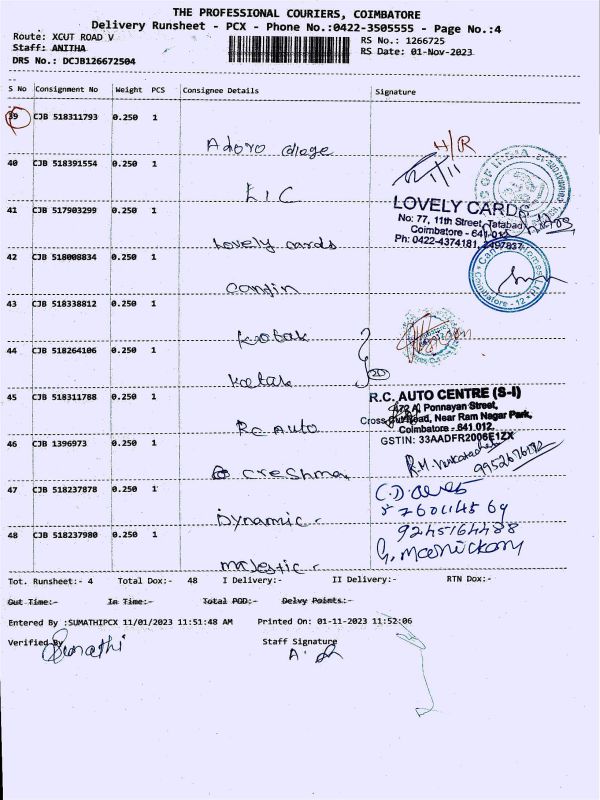 THE PROFESSIONAL COURIERS, COIMBATORE
Delivery Runsheet - PCX - Phone No.:0422-3505555 - Page No.:4
Route: XCUT ROAD V
RS No.: 1266725
Staff: ANITHA
RS Date: 01-Nov-2023
DRS No.: DCJB126672504
S No Consignment No Weight PCS Consignee Details Signature
39 CJB 518311793 0.250 1
H/R
1/11
40 CJB 518391554 0.250 1
LIC
LOVELY CARDS
No: 77, 11th Street, Tatabad
Coimbatore - 641 012
Ph: 0422-4374181,
41 CJB 517903299 0.250 1
Lovely cards
42 CJB 518008834 0.250 1
43 CJB 518338812 0.250 1
Kotak
44 CJB 518264106 0.250 1
Kotak
R.C. AUTO CENTRE (S-I)
Ponnayan Street,
Cross Cut Road, Near Ram Nagar Park,
Coimbatore - 641 012.
GSTIN: 33AADFR2006E1ZX
45 CJB 518311788 0.250 1
RC Auto
46 CJB 1396973 0.250 1
47 CJB 518237878 0.250 1
Dynamic
48 CJB 518237980 0.250 1
9245164488
majestic
Tot. Runsheet:- 4 Total Dox:- 48 I Delivery:- II Delivery:- RTN Dox:-
Out Time:- In Time:- Total POD:- Delvy Points:-
Entered By :SUMATHIPCX 11/01/2023 11:51:48 AM Printed On: 01-11-2023 11:52:06
Verified By Staff Signature
Sumathi